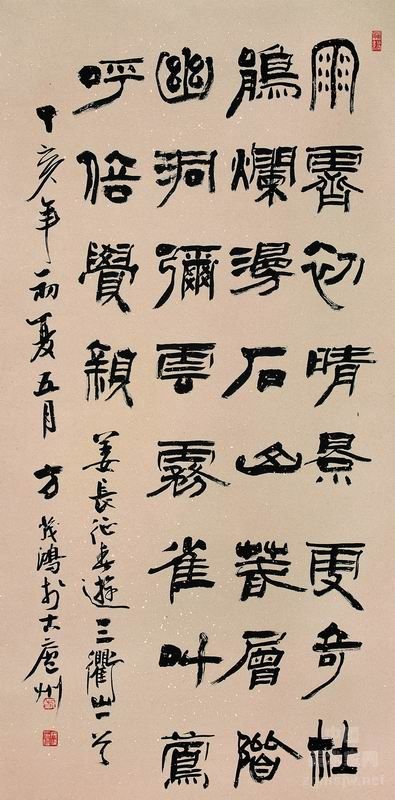 雨霽初晴景更奇杜
鵑爛漫石山叢層階
幽洞彌雲霧雀叫鶯
呼倍覺親
姜長征春遊三衢山一首
丁亥年初夏五月方茂鴻於古廬州